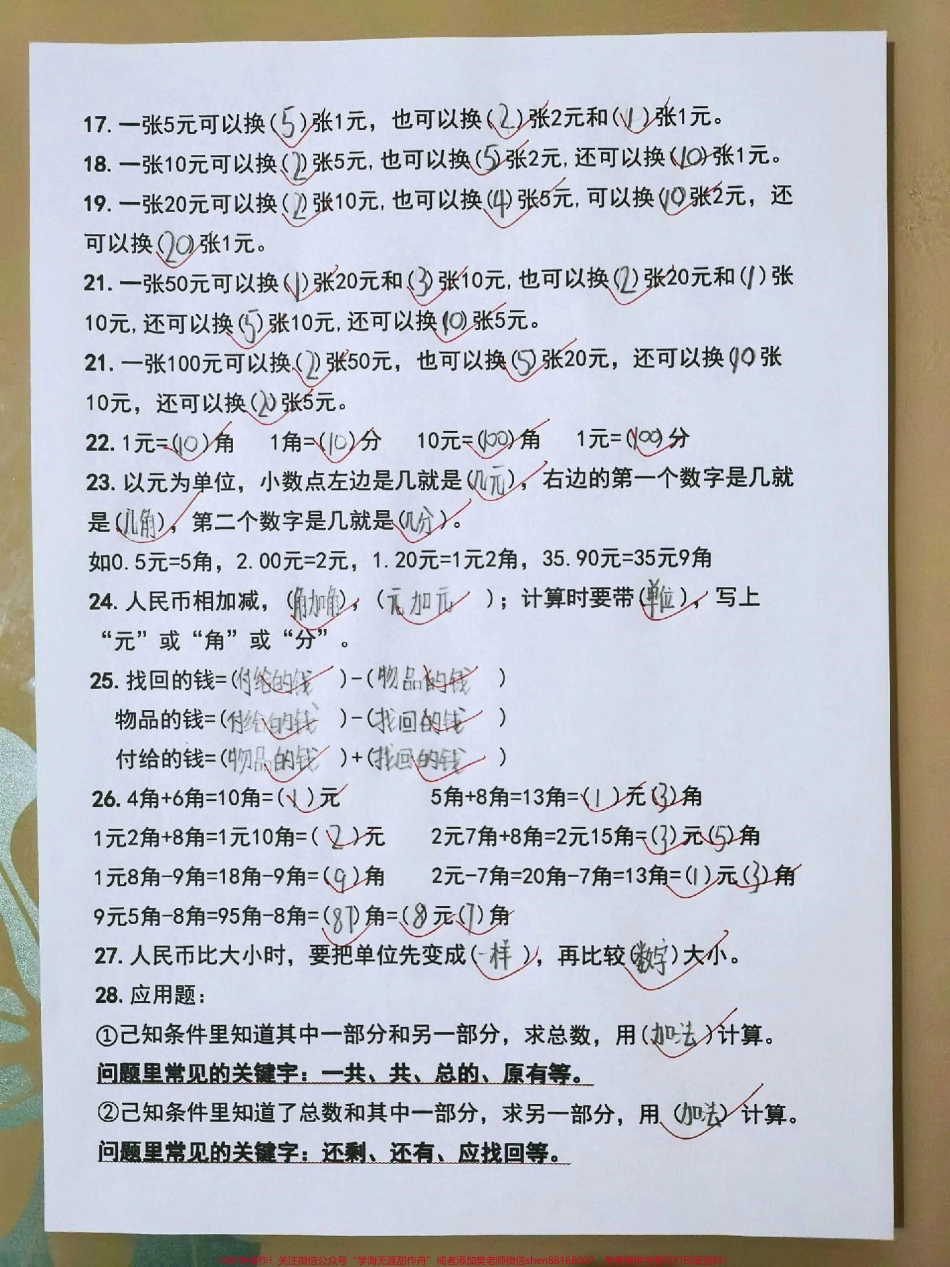 17. 一张5元可以换(5)张1元，也可以换(2)张2元和(1)张1元。
18. 一张10元可以换(2)张5元,也可以换(5)张2元,还可以换(10)张1元。
19. 一张20元可以换(2)张10元,也可以换(4)张5元,可以换(10)张2元，还
可以换(20)张1元。
21. 一张50元可以换(1)张20元和(3)张10元,也可以换(2)张20元和(1)张
10元,还可以换(5)张10元,还可以换(10)张5元。
21. 一张100元可以换(2)张50元，也可以换(5)张20元，还可以换(10)张
10元，还可以换(20)张5元。
22. 1元=(10)角 1角=(10)分 10元=(100)角 1元=(100)分
23. 以元为单位，小数点左边是几就是(几元)，右边的第一个数字是几就
是(几角)，第二个数字是几就是(几分)。
如0.5元=5角，2.00元=2元，1.20元=1元2角，35.90元=35元9角
24. 人民币相加减，(角加角)，(元加元)；计算时要带(单位)，写上
“元”或“角”或“分”。
25. 找回的钱=(付给的钱)-(物品的钱)
物品的钱=(付给的钱)-(找回的钱)
付给的钱=(物品的钱)+(找回的钱)
26. 4角+6角=10角=(1)元 5角+8角=13角=(1)元(3)角
1元2角+8角=1元10角=(2)元 2元7角+8角=2元15角=(3)元(5)角
1元8角-9角=18角-9角=(9)角 2元-7角=20角-7角=13角=(1)元(3)角
9元5角-8角=95角-8角=(87)角=(8)元(7)角
27. 人民币比大小时，要把单位先变成(一样)，再比较(数字)大小。
28. 应用题：
①己知条件里知道其中一部分和另一部分，求总数，用(加法)计算。
问题里常见的关键字：一共、共、总的、原有等。
②己知条件里知道了总数和其中一部分，求另一部分，用(加法)计算。
问题里常见的关键字：还剩、还有、应找回等。